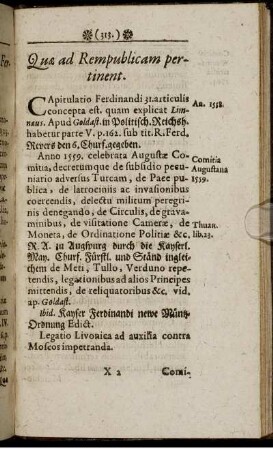 (313.)
Quæ ad Rempublicam per-
tinent.
CApitulatio Ferdinandi 31. articulis
concepta est. quam explicat Lim-
næus. Apud Goldast. in Politisch. Reichsh.
habetur parte V. p. 162. sub tit. R. Ferd.
Revers den 6. Churf. gegeben.
An. 1558.
Anno 1559. celebrata Augustæ Co-
mitia, decretumque de subsidio pecu-
niario adversus Turcam, de Pace pu-
blica, de latrociniis ac invasionibus
coercendis, delectu militum peregri-
nis denegando, de Circulis, de grava-
minibus, de visitatione Cameræ, de
Moneta, de Ordinatione Politiæ &c.
R. A. zu Augspurg durch die Kayserl.
May. Churf. Fürstl. und Ständ inglei-
chem de Meti, Tullo, Verduno repe-
tendis, legationibus ad alios Principes
mittendis, de reliquatoribus &c. vid.
ap. Goldast.
Comitia
Augustana
1559.
Thuan.
lib. 23.
ibid. Kayser Ferdinandi newe Müntz-
Ordnung Edict.
Legatio Livonica ad auxilia contra
Moscos impetranda.
X 2
Comi-